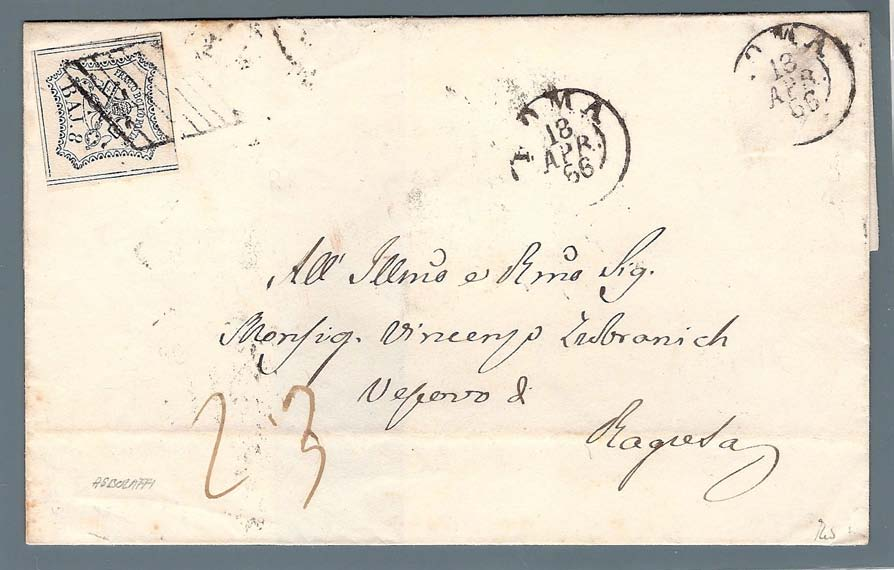 BAJ. 8
ROMA
18
APR.
66
ROMA
18
APR.
66
All' Illmo e Rmo Sig.
Monsig. Vincenzo Zubranich
Vescovo di
Ragusa
23